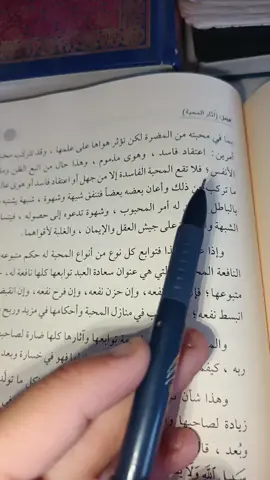 فصل: (آثار المحبة)
بما في محبته من المضرة لكن تؤثر هواها على علمها، وقد تتركب محبتها
أمرين: اعتقاد فاسد، وهوى مذموم، وهذا حال من اتبع الظن وما
الأنفس؛ فلا تقع المحبة الفاسدة إلا من جهل أو اعتقاد فاسد أو هوى غالب
ما تركب من ذلك وأعان بعضه بعضاً فتتفق شبهة وشهوة، شبهة يشتبه
بالباطل له أمر المحبوب، وشهوة تدعوه إلى حصوله، فيتسا
الشبهة على جيش العقل والإيمان، والغلبة لأقواهما.
وإذا فتوابع كل نوع من أنواع المحبة له حكم متبوعه
النافعة هي عنوان سعادة العبد توابعها كلها نافعة له،
متبوعها؛ نفعه، وإن حزن نفعه، وإن فرح نفعه، وإن انقبض
انبسط نفعه؛ في منازل المحبة وأحكامها في مزيد وربح
توابعها وآثارها كلها ضارة لصاحبها
ربه، كيفما فهو في خسارة وبعد
وهذا شأن كل ما تولد
زيادة لصاحبها
وبُعد، قال